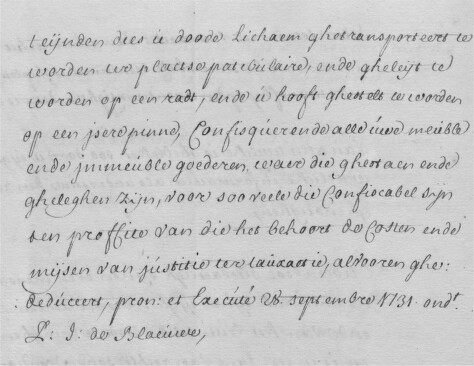 teijnden dies u doode lichaem ghetransporteert te
worden ter plaetse patibulaire, ende gheleijt te
worden op een radt, ende u hooft ghestelt te worden
op een jsere pinne, Confisquerende alle uwe meuble
ende immeuble goederen, waer die ghestaen ende
gheleghen zijn, voor soo veele die Confiscabel sijn
ten proffite van die het behoort de Costen ende
mijsen van justitie ter tauxactie, alvooren ghe:
deduceert, pron: et Executé 28. septembre 1731. ondt.
J: de